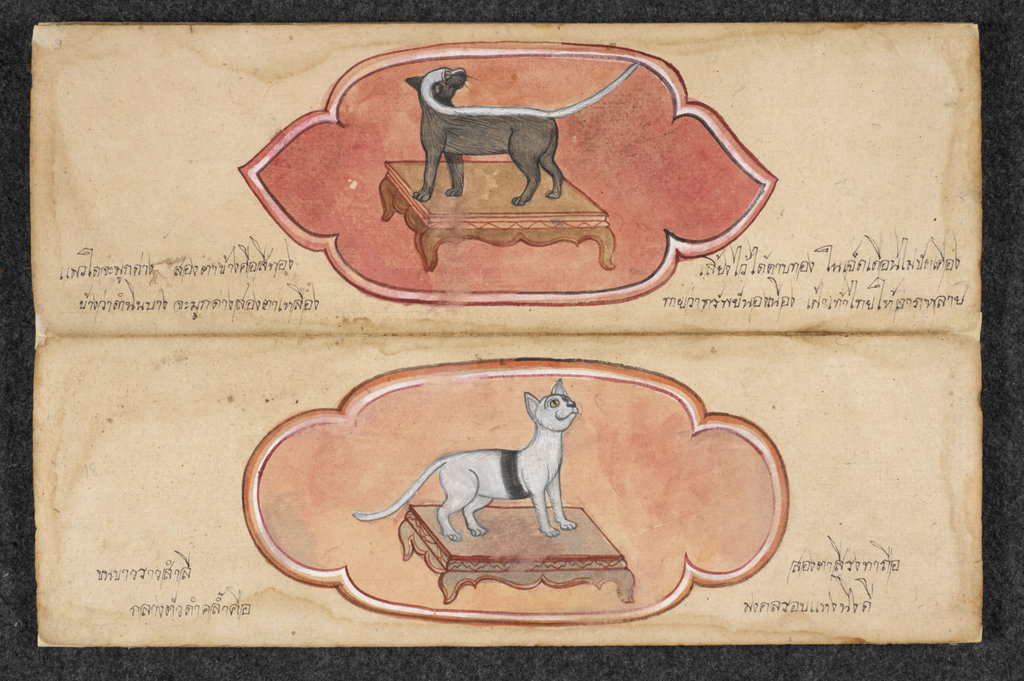 แมวใดจะมูกด่าง สองตาข้างคือสีทอง
เลี้ยงไว้ได้ตาบทอง ใน เดือนไม่ขัดเคือง
บ้างว่าตำนิบาง จะมูกด่างสองตาเหลือง
ทายว่าทรัพย์นองเนือง เจ้าเท้าไทยให้ลาภหลาย
ขนขาวราวสำลี
สองตาสี
กลางตัวดำคล้ำคือ
มงคลรอบแห่ง ดี